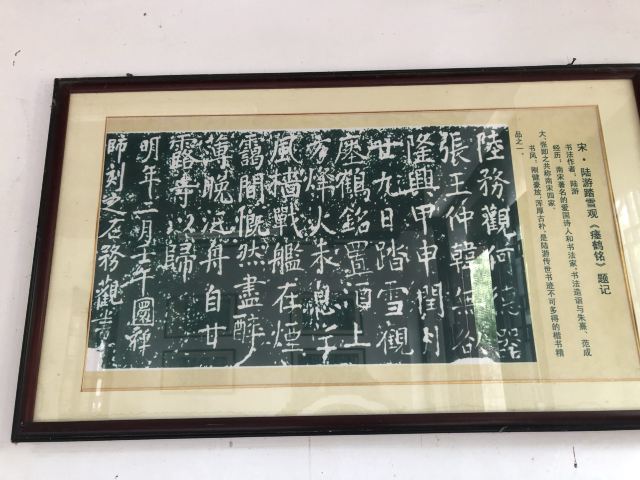 宋·陆游踏雪观《瘗鹤铭》题记
书法作者：陆游
经历：南宋著名的爱国诗人和书法家，书法造诣与朱熹、范成
大、张即之共称南宋四家。
书风：刚健豪放，浑厚古朴，是陆游传世书迹不可多得的楷书精
品之一。
陸務觀何德器
張玉仲韓無咎
隆興甲申閏月
廿九日踏雪觀
瘞鶴銘置酒上
方烽火未息望
風檣戰艦在煙
靄間慨然盡醉
薄晚泛舟自甘
露寺以歸
明年二月壬午圜禪
師刻之石務觀書